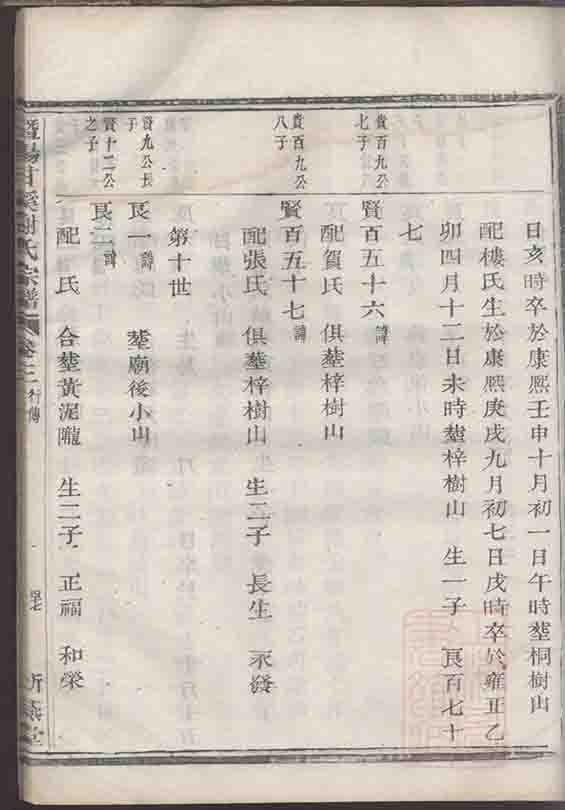 日亥時卒於康熙壬申十月初一日午時塟桐樹山
配樓氏生於康熙庚戌九月初七日戌時卒於雍正乙
卯四月十二日未時塟梓樹山 生一子 良百七十
七
貴百九公
七子
賢百五十六諱
配賀氏 俱塟梓樹山
貴百九公
八子
賢百五十七諱
配張氏 俱塟梓樹山 生二子 長生 永發
第十世
賢九公長
子
良一諱 塟廟後小山
賢十二公
之子
良二諱
配 氏 合塟黃泥隴 生二子 正福 和榮
暨陽甘溪謝氏宗譜 卷二 行傳